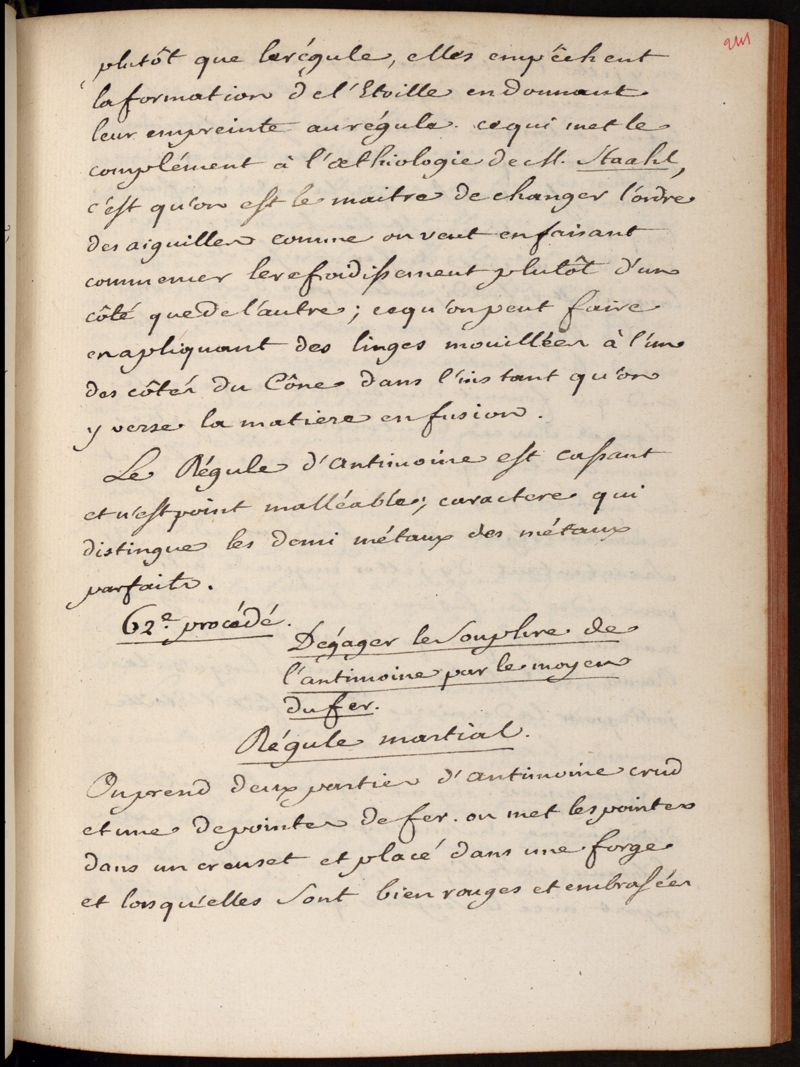 241
plutôt que le régule, elles empêchent
la formation de l'Etoille en donnant
leur empreinte au régule. ce qui met le
complément à l'œthiologie de M. Staahl,
c'est qu'on est le maitre de changer l'ordre
des aiguilles comme on veut en faisant
commencer le refroidissement plutôt d'un
côté que de l'autre; ce qu'on peut faire
en apliquant des linges mouillées à l'un
des côtés du Cône dans l'instant qu'on
y verse la matiere en fusion.
Le Régule d'antimoine est cassant
et n'est point malléable; caractere qui
distingue les demi métaux des métaux
parfaits.
62.e procédé.
Dégager le Souphre de
l'antimoine par le moyen
du fer.
Régule martial.
On prend deux parties d'antimoine crud
et une de pointes de fer. on met les pointes
dans un creuset et placé dans une forge
et lorsqu'elles sont bien rouges et embrasées